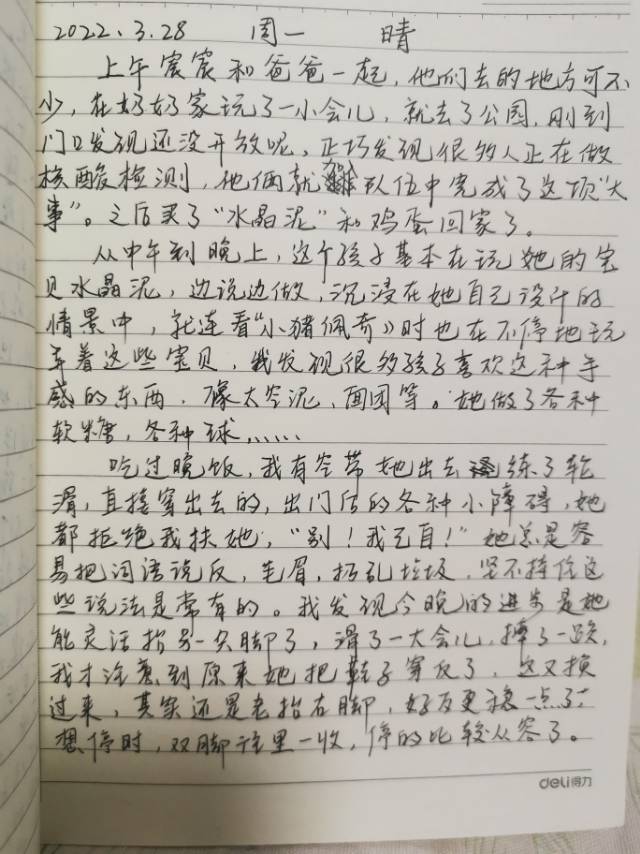 2022.3.28 周一 晴
上午宸宸和爸爸一起，他们去的地方可不
少，在奶奶家玩了一小会儿，就去了公园，刚到
门口发现还没开放呢，正巧发现很多人正在做
核酸检测，他俩就队伍中完成了这项“大
事”。之后买了“水晶泥”和鸡蛋回家了。
从中午到晚上，这个孩子基本在玩她的宝
贝水晶泥，边说边做，沉浸在她自己设计的
情景中，就连看“小猪佩奇》时也在不停地玩
弄着这些宝贝，我发现很多孩子喜欢这种手
感的东西，像太空泥、面团等。她做了各种
软糖，各种球……
吃过晚饭，我有空带她出去练了轮
滑，直接穿出去的，出门后的各种小障碍，她
都拒绝我扶她，“别！我己自！”她总是容
易把词语说反，毛眉，扔乱垃圾，坚不持住这
些说法是常有的。我发现今晚的进步是她
能灵活抬另一只脚了，滑了一大会儿，摔了一跤，
我才注意到原来她把鞋子穿反了，这又换
过来，其实还是老抬右脚，好反更稳一点了；
想停时，双脚往里一收，停的比较从容了。
deli得力